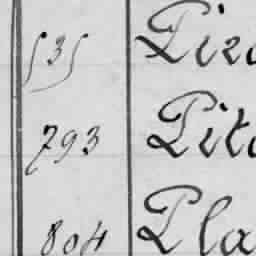 535 Piza
793 Pita
804 Pla